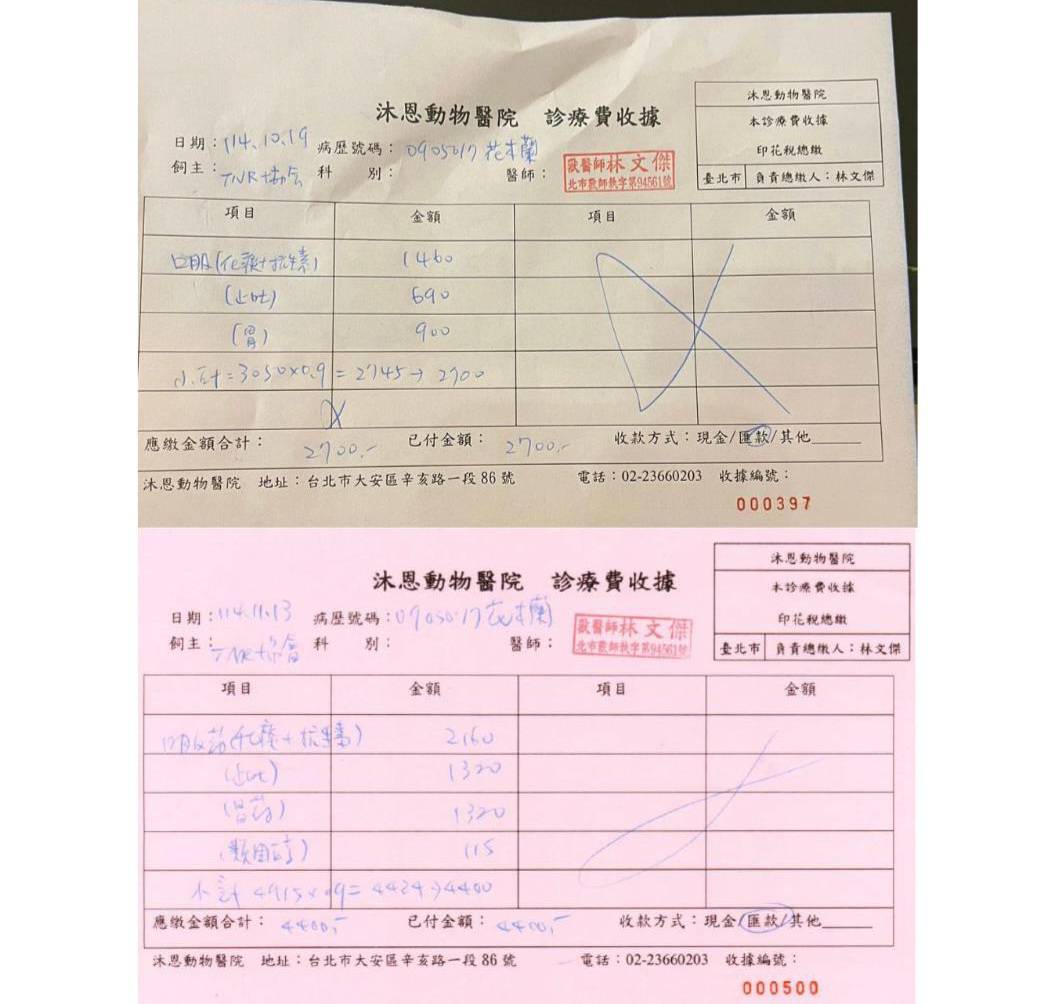 沐恩動物醫院 診療費收據
沐恩動物醫院
本診療費收據
印花稅總繳
臺北市 負責總繳人:林文傑
日期:114.10.19 病歷號碼:0905017 花木蘭
飼主:TNR協會 科 別: 醫師: 獸醫師林文傑
北市獸師執字第94561號
項目 金額 項目 金額
口服(化療+抗生素) 1460
(止吐) 690
(胃) 900
小計=3050×0.9=2745→2700
應繳金額合計:2700.- 已付金額:2700.- 收款方式:現金/匯款/其他
沐恩動物醫院 地址:台北市大安區辛亥路一段86號 電話:02-23660203 收據編號:
000397
沐恩動物醫院 診療費收據
沐恩動物醫院
本診療費收據
印花稅總繳
臺北市 負責總繳人:林文傑
日期:114.11.13 病歷號碼:0905017花木蘭
飼主:TNR協會 科 別: 醫師: 獸醫師林文傑
北市獸師執字第94561號
項目 金額 項目 金額
口服药(化療+抗生素) 2160
(止吐) 1320
(胃药) 1320
(類固醇) 115
小計 4915×0.9=4424→4400
應繳金額合計:4400.- 已付金額:4400.- 收款方式:現金/匯款/其他
沐恩動物醫院 地址:台北市大安區辛亥路一段86號 電話:02-23660203 收據編號:
000500